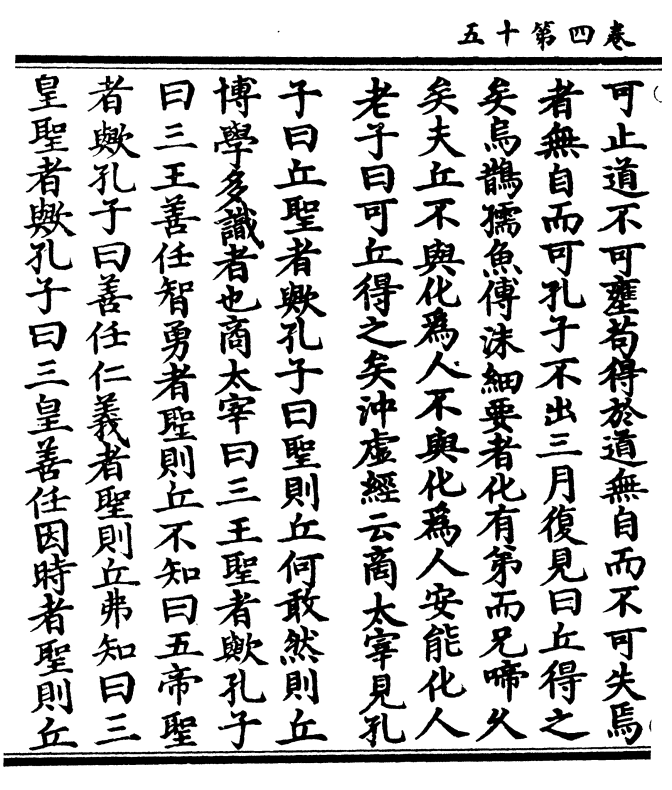 卷四第十五
可止道不可壅苟得於道無自而不可失焉
者無自而可孔子不出三月復見曰丘得之
矣烏鵲孺魚傅沫細要者化有弟而兄啼久
矣夫丘不與化爲人不與化爲人安能化人
老子曰可丘得之矣沖虛經云商太宰見孔
子曰丘聖者歟孔子曰聖則丘何敢然則丘
博學多識者也商太宰曰三王聖者歟孔子
曰三王善任智勇者聖則丘不知曰五帝聖
者歟孔子曰善任仁義者聖則丘弗知曰三
皇聖者歟孔子曰三皇善任因時者聖則丘